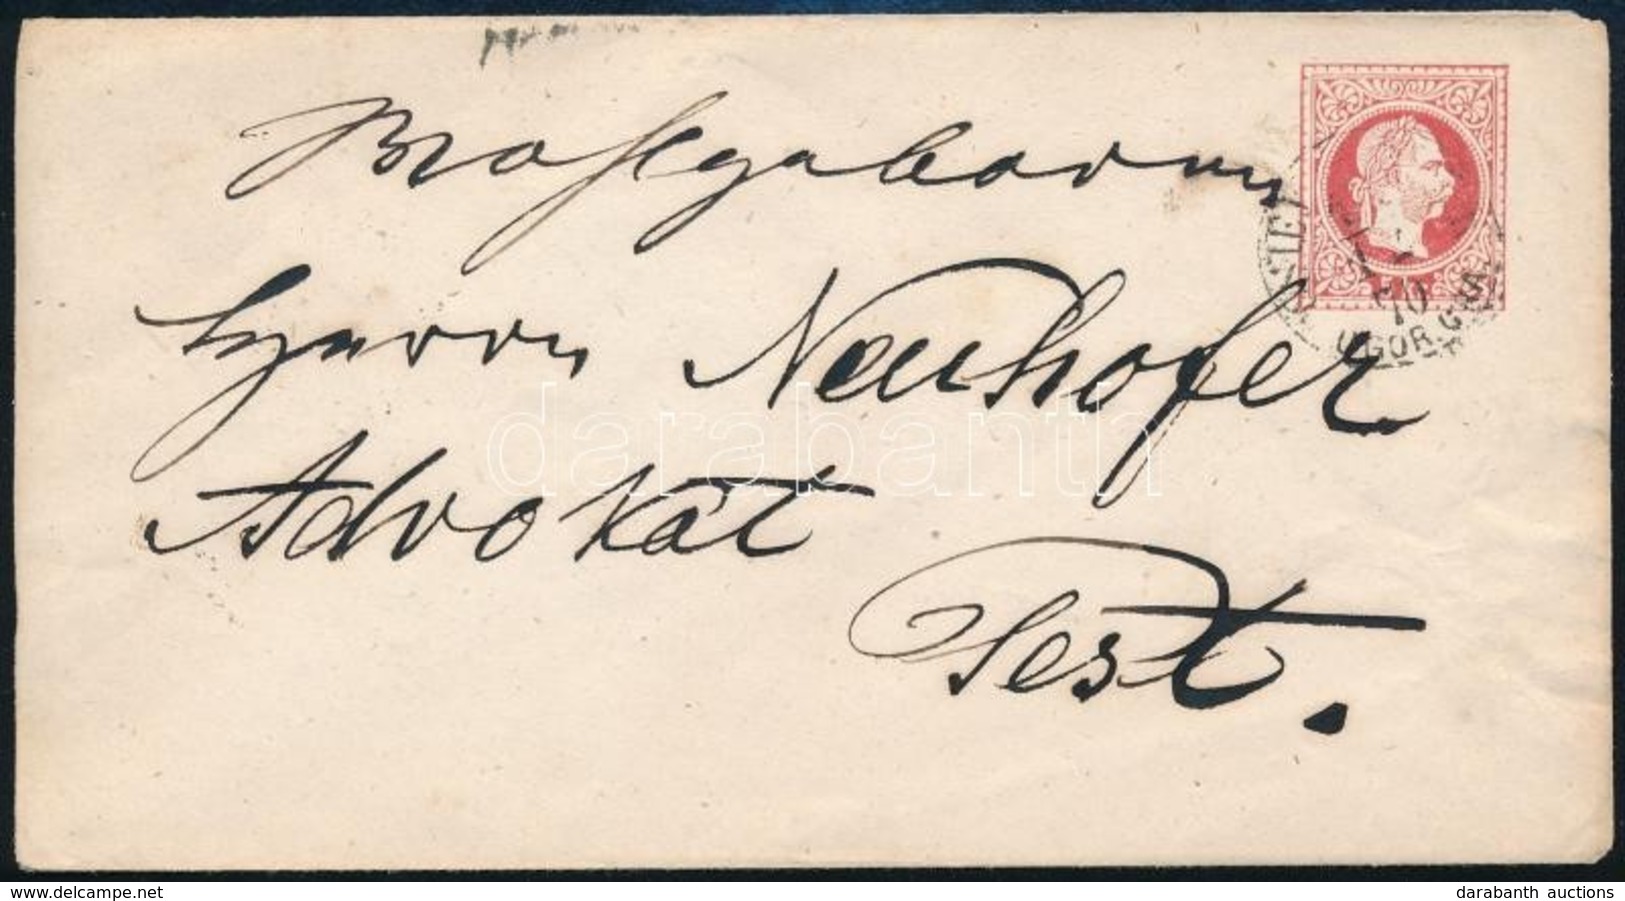 Wohlgeboren
Herrn Neuhofer
Advokat
Pest.
70
UGOR. GRA.
darabanth
www.delcampe.net
darabanth auctions